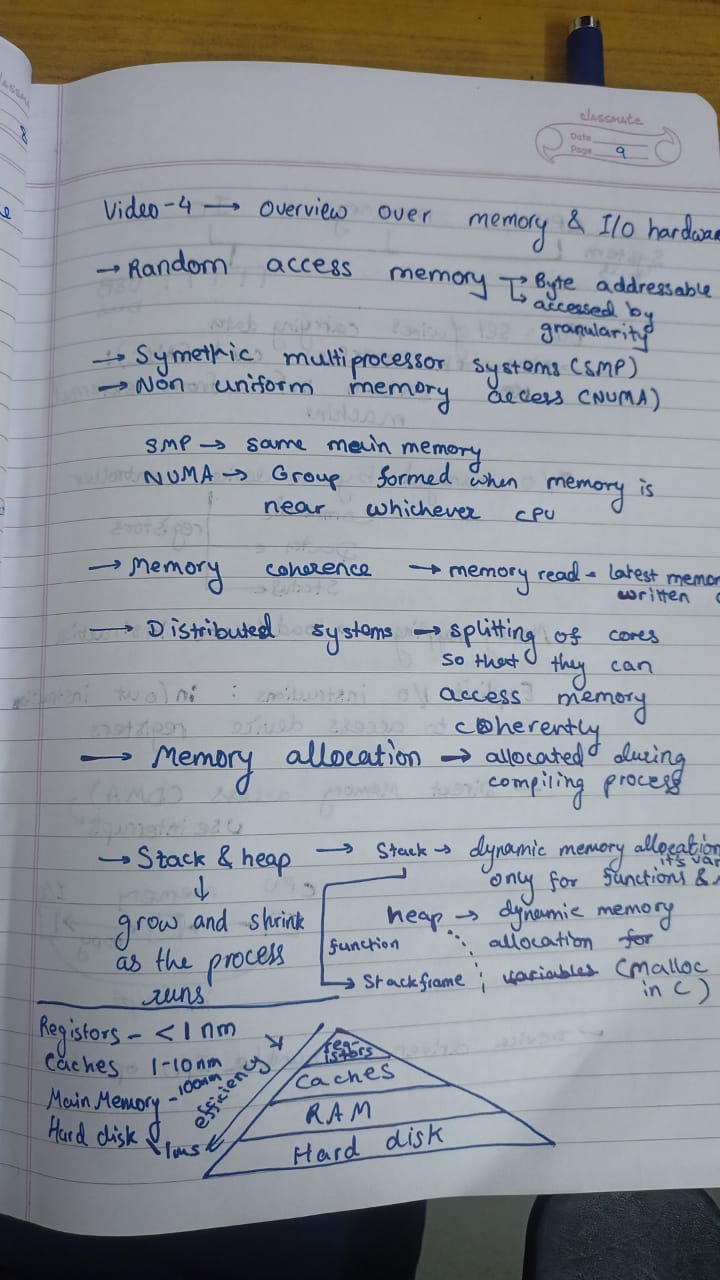 classmate
Date
Page 9
Video-4 → overview over memory & I/O hardwa
→ Random access memory → Byte addressable
→ accessed by
granularity
→ Symethic multiprocessor systems (SMP)
→ Non uniform memory access (NUMA)
SMP → same main memory
NUMA → Group formed when memory is
near whichever CPU
→ Memory coherence → memory read = latest memo
written
→ Distributed systems → splitting of cores
so that they can
access memory
coherently
→ Memory allocation → allocated during
compiling process
→ Stack & heap → Stack → dynamic memory allocation
only for functions & it's var
↓
grow and shrink
as the process
runs
heap → dynamic memory
allocation for
variables (malloc
in C)
function
→ Stackframe
Registors - < 1 nm
Caches 1-10nm
Main Memory - 100nm
Hard disk 1ms
efficiency
reg-
istors
Caches
RAM
Hard disk